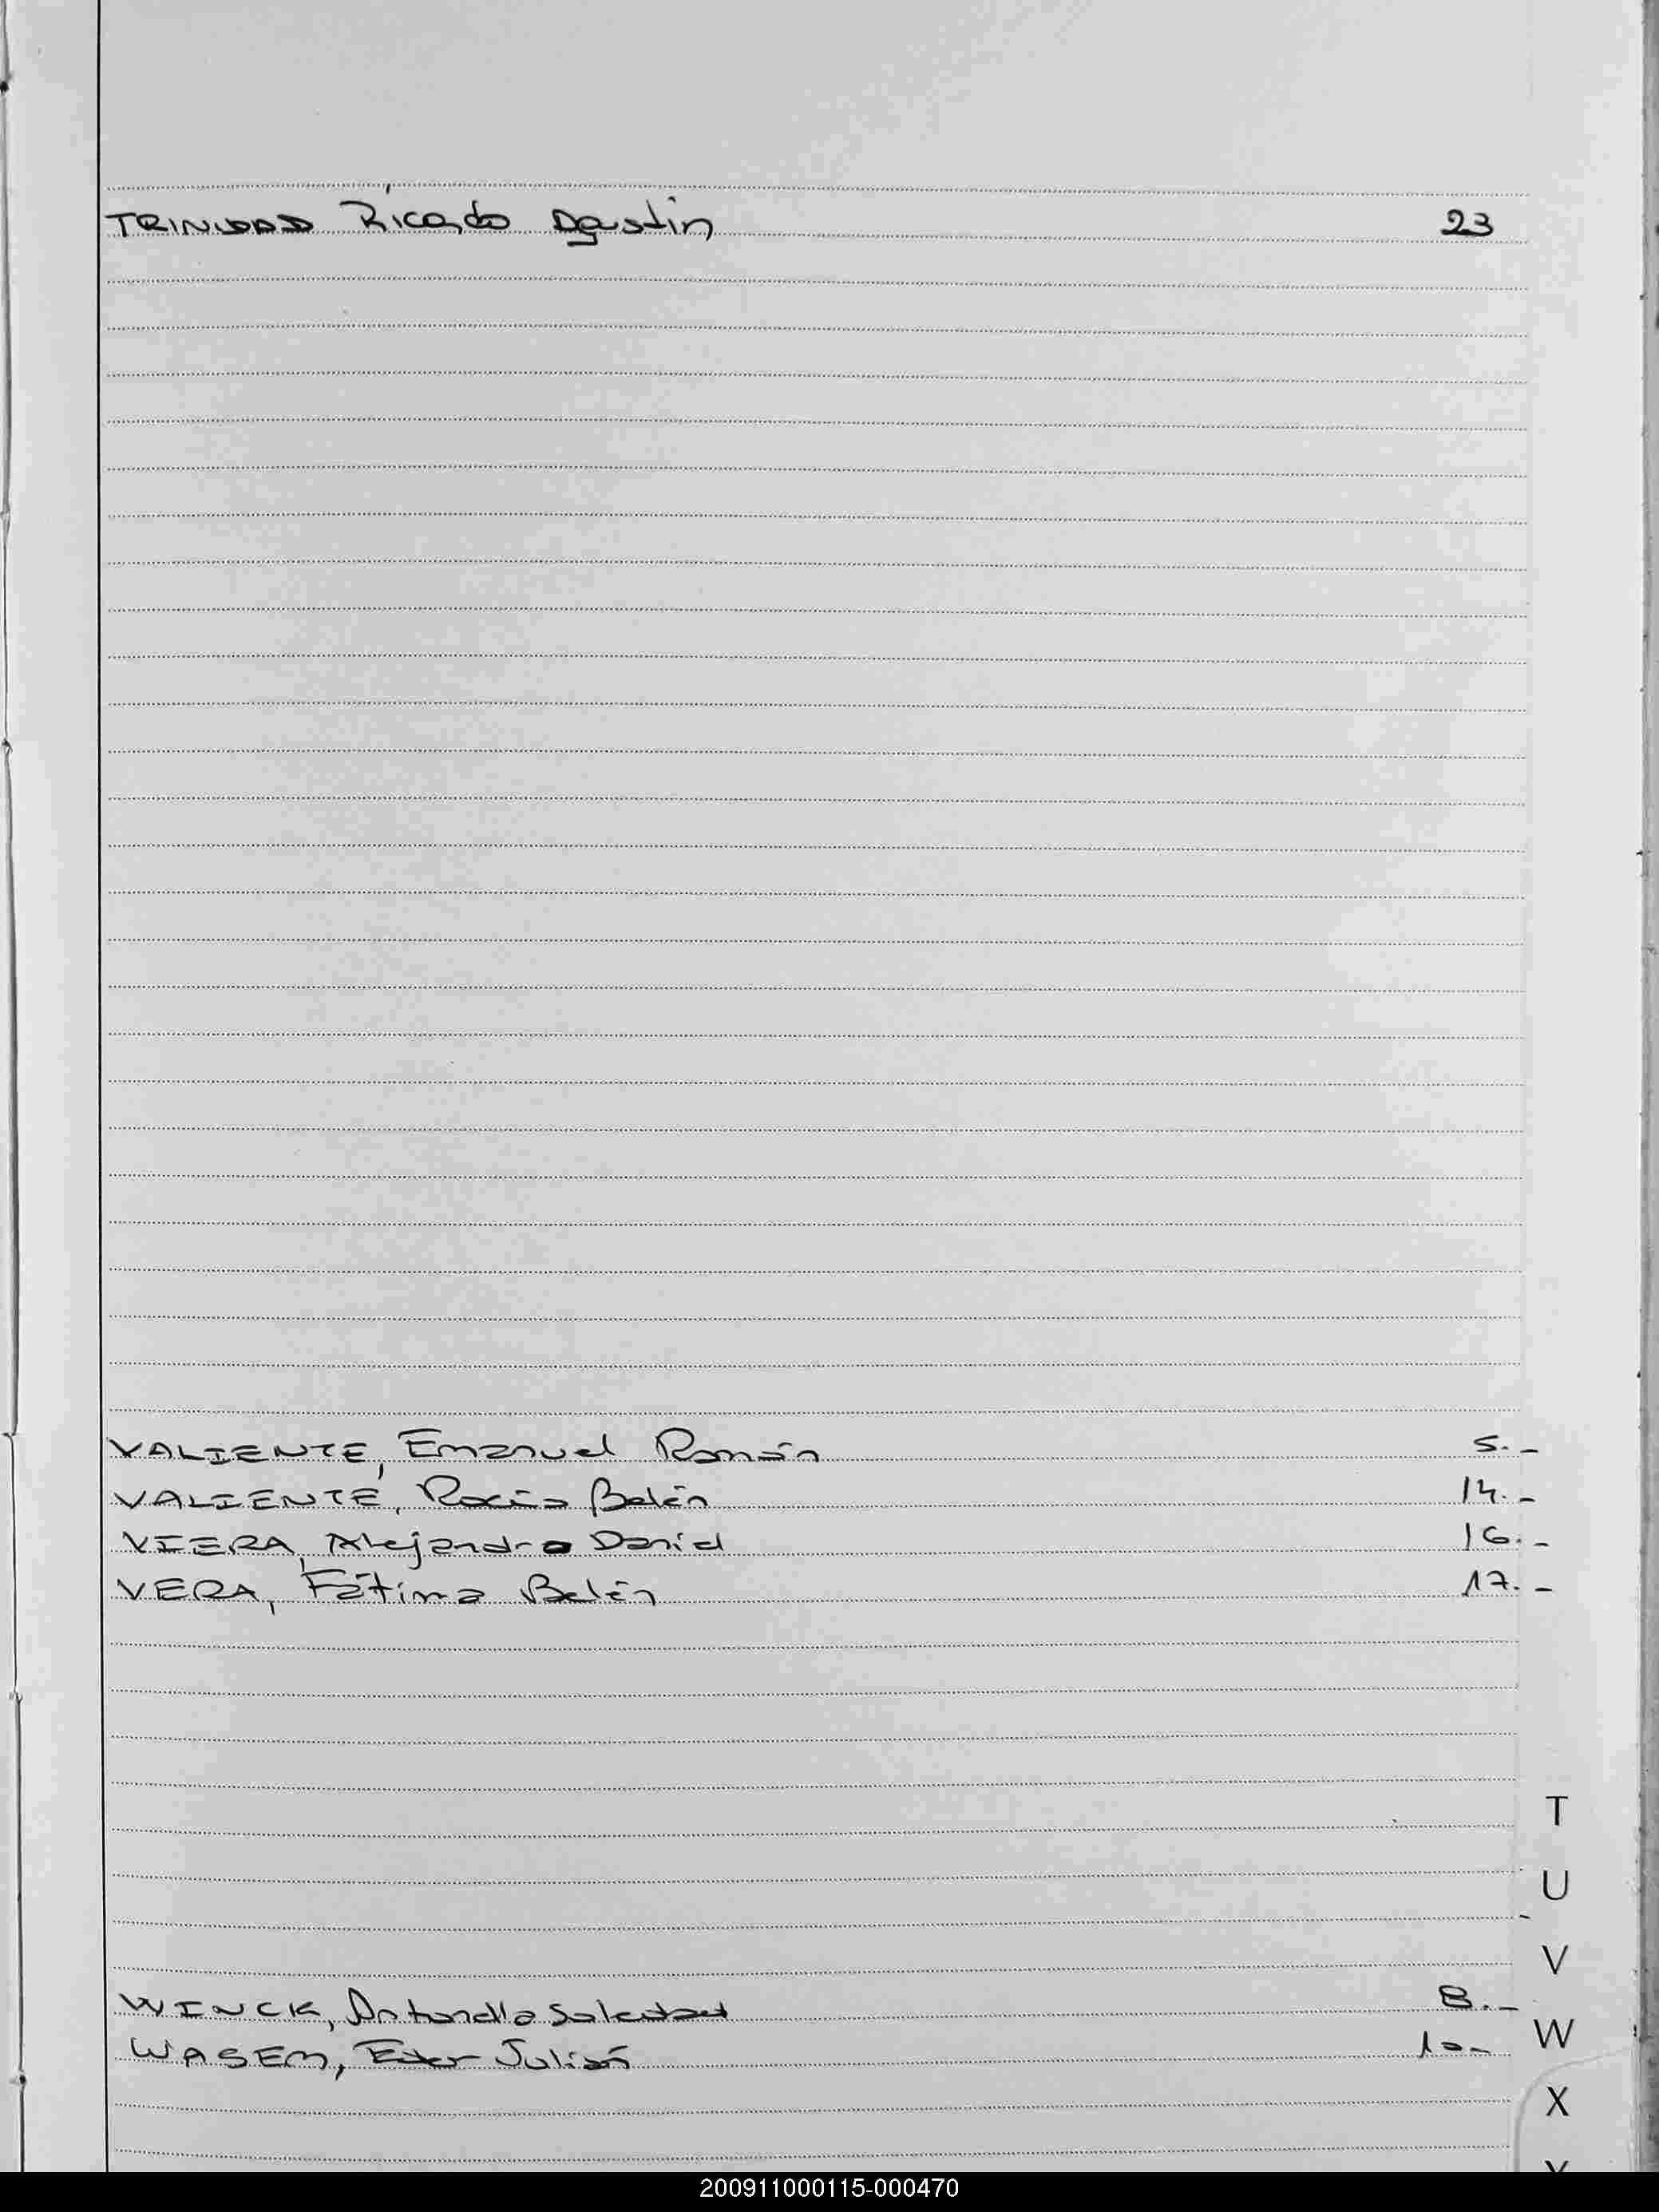 TRINIDAD Ricardo Agustin 23
VALIENTE, Emanuel Román 5.-
VALIENTE, Rocío Belén 14.-
VIERA, Alejandro Daniel 16.-
VERA, Fátima Belén 17.-
T
U
V
WINCK, Antonella Soledad 8.-
W
WASEM, Eder Julián 10-
X
Y
200911000115-000470